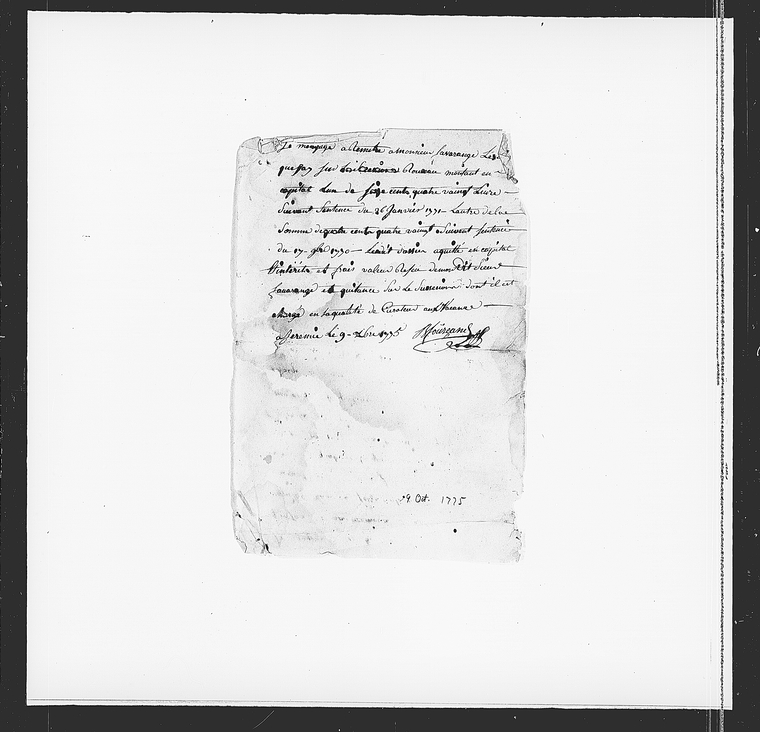 Je mengage a Remetre a monsieur favarange Les
que jay sur Rouveau montant en
capital Lun de seize cents quatre vaingt Livre
Suivant Sentence du 26 Janvier 1771 Lautre de la
Somme de quatre cents quatre vaingt Suivent sentence
du 17 9bre 1770 aquité en capital
Dintérêts et frais valeur Resu dudit Sieur
favarange et quitance Sur La Succession dont il est
chargé en sa qualité de Curateur aux Vacance
a Jeremie Le 9 1775
9 Oct. 1775